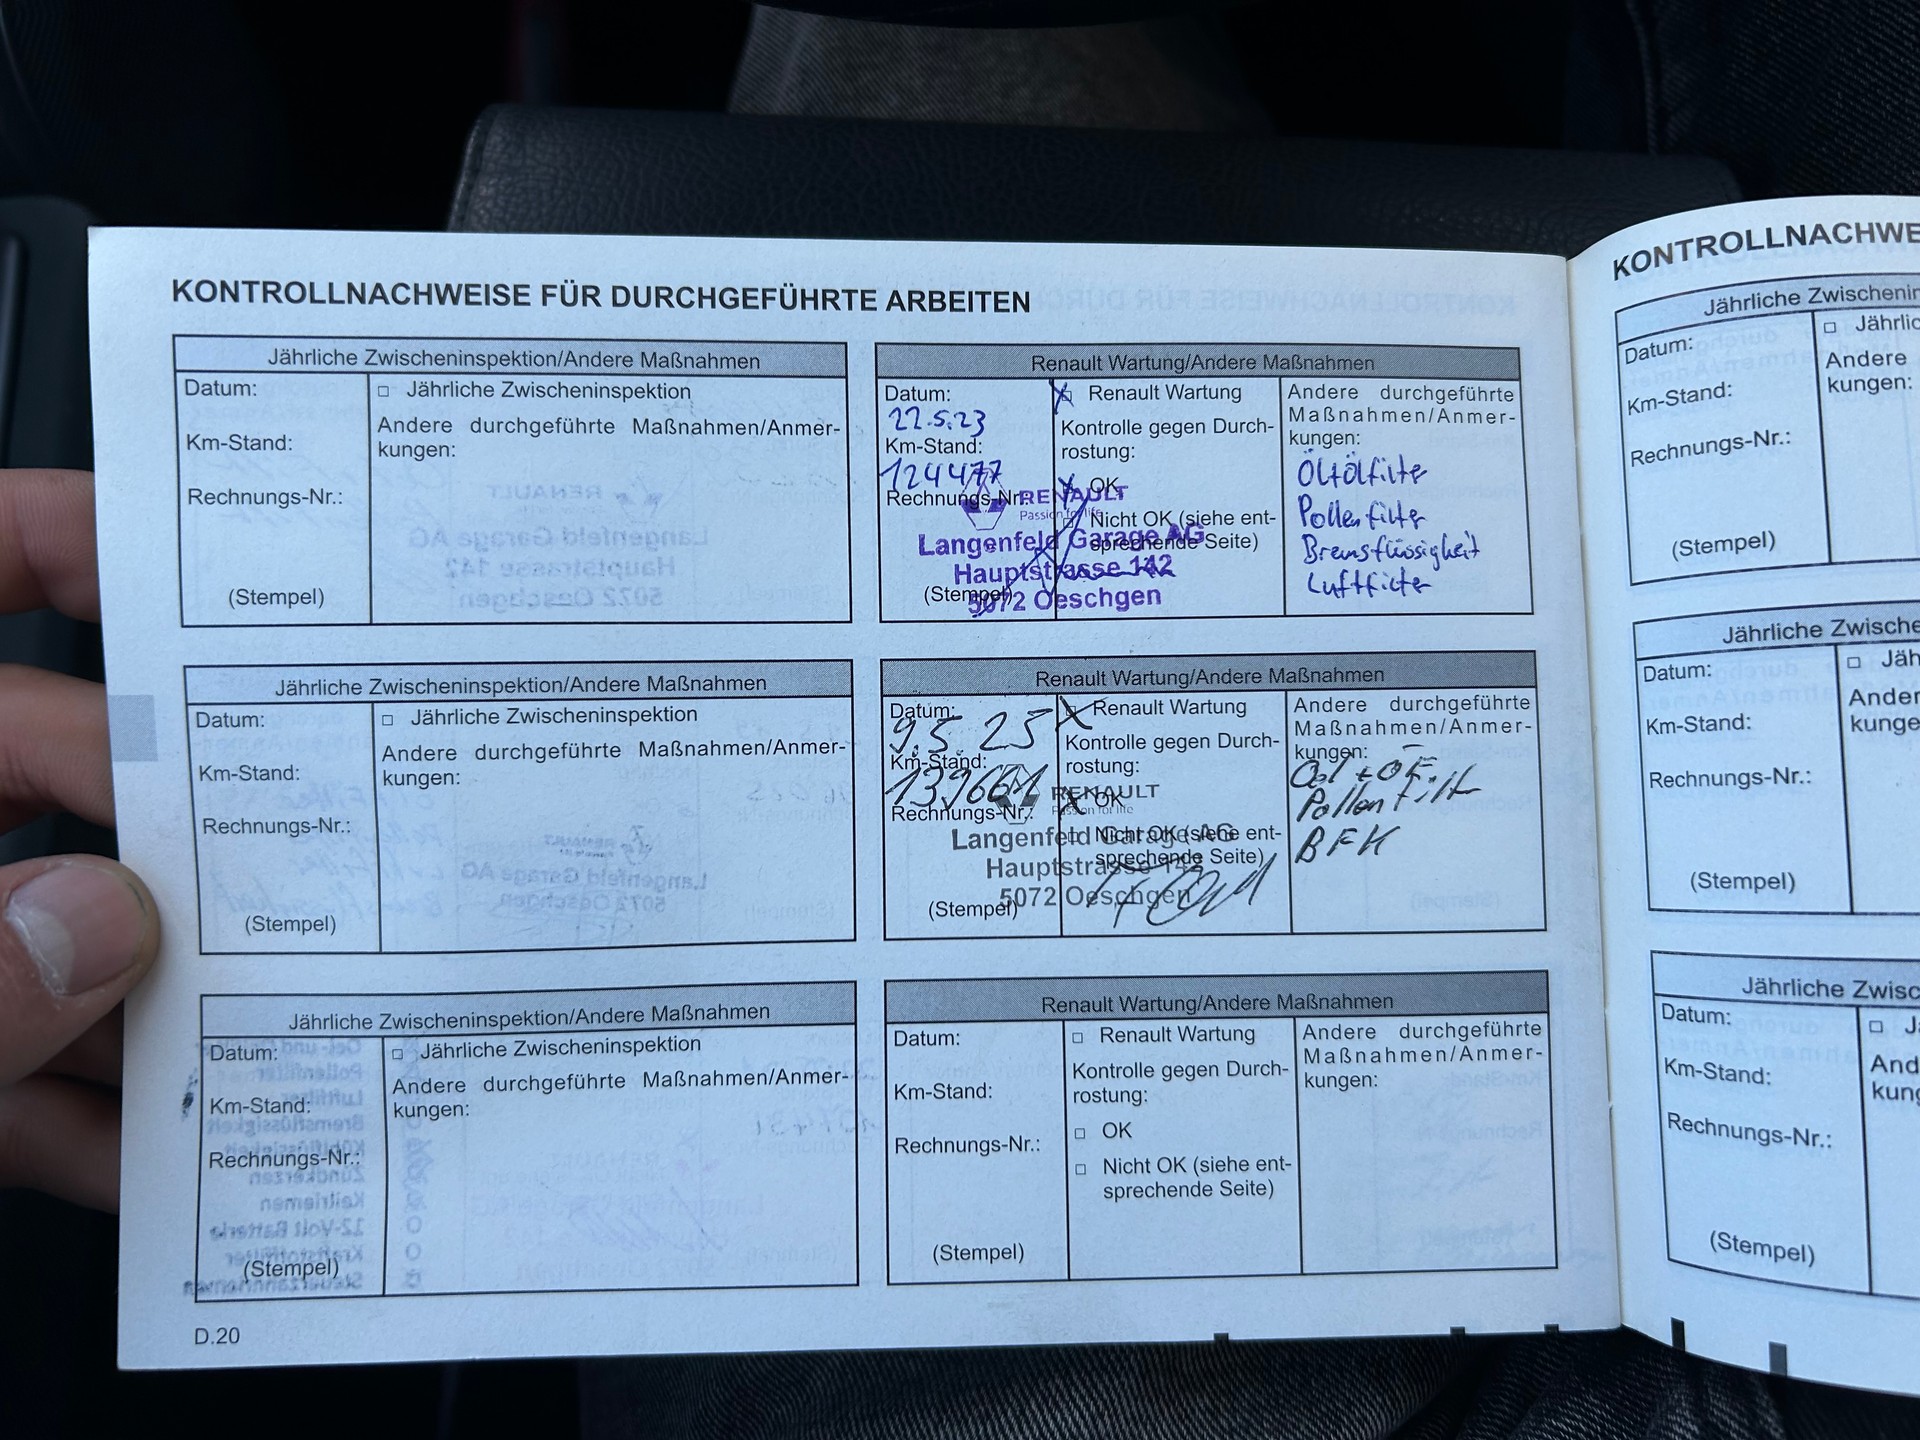 KONTROLLNACHWEISE FÜR DURCHGEFÜHRTE ARBEITEN
Jährliche Zwischeninspektion/Andere Maßnahmen
Datum:
□ Jährliche Zwischeninspektion
Andere durchgeführte Maßnahmen/Anmer-
kungen:
Km-Stand:
Rechnungs-Nr.:
(Stempel)
Renault Wartung/Andere Maßnahmen
Datum:
22.5.23
Km-Stand:
124477
Rechnungs-Nr.:
(Stempel)
Renault Wartung
Kontrolle gegen Durch-
rostung:
OK
Nicht OK (siehe ent-
sprechende Seite)
RENAULT
Passion for life
Langenfeld Garage AG
Hauptstrasse 142
5072 Oeschgen
Andere durchgeführte
Maßnahmen/Anmer-
kungen:
Öl+Ölfilter
Pollenfilter
Bremsflüssigkeit
Luftfilter
Jährliche Zwischeninspektion/Andere Maßnahmen
Datum:
□ Jährliche Zwischeninspektion
Andere durchgeführte Maßnahmen/Anmer-
kungen:
Km-Stand:
Rechnungs-Nr.:
(Stempel)
Renault Wartung/Andere Maßnahmen
Datum:
9.5.25
Km-Stand:
139661
Rechnungs-Nr.:
(Stempel)
Renault Wartung
Kontrolle gegen Durch-
rostung:
OK
Nicht OK (siehe ent-
sprechende Seite)
RENAULT
Passion for life
Langenfeld Garage AG
Hauptstrasse 142
5072 Oeschgen
Andere durchgeführte
Maßnahmen/Anmer-
kungen:
Oel + OF
Pollen Filt
BFK
Jährliche Zwischeninspektion/Andere Maßnahmen
Datum:
□ Jährliche Zwischeninspektion
Andere durchgeführte Maßnahmen/Anmer-
kungen:
Km-Stand:
Rechnungs-Nr.:
(Stempel)
Renault Wartung/Andere Maßnahmen
Datum:
Km-Stand:
Rechnungs-Nr.:
(Stempel)
□ Renault Wartung
Kontrolle gegen Durch-
rostung:
□ OK
□ Nicht OK (siehe ent-
sprechende Seite)
Andere durchgeführte
Maßnahmen/Anmer-
kungen:
D.20
KONTROLLNACHWE
Jährliche Zwischenin
Datum:
□ Jährlic
Andere
kungen:
Km-Stand:
Rechnungs-Nr.:
(Stempel)
Jährliche Zwische
Datum:
□ Jäh
Ander
kunge
Km-Stand:
Rechnungs-Nr.:
(Stempel)
Jährliche Zwisc
Datum:
□ J
And
kung
Km-Stand:
Rechnungs-Nr.:
(Stempel)